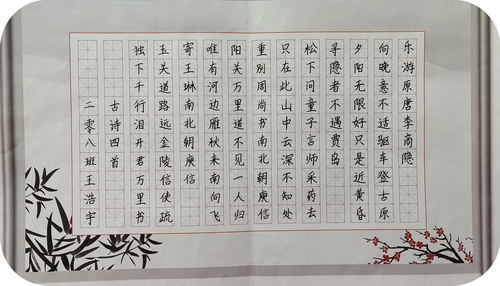 乐游原唐李商隐
向晚意不适驱车登古原
夕阳无限好只是近黄昏
寻隐者不遇贾岛
松下问童子言师采药去
只在此山中云深不知处
重别周尚书南北朝庾信
阳关万里道不见一人归
唯有河边雁秋来南向飞
寄王琳南北朝庾信
玉关道路远金陵信使疏
独下千行泪开君万里书
古诗四首
二零八班王浩宇